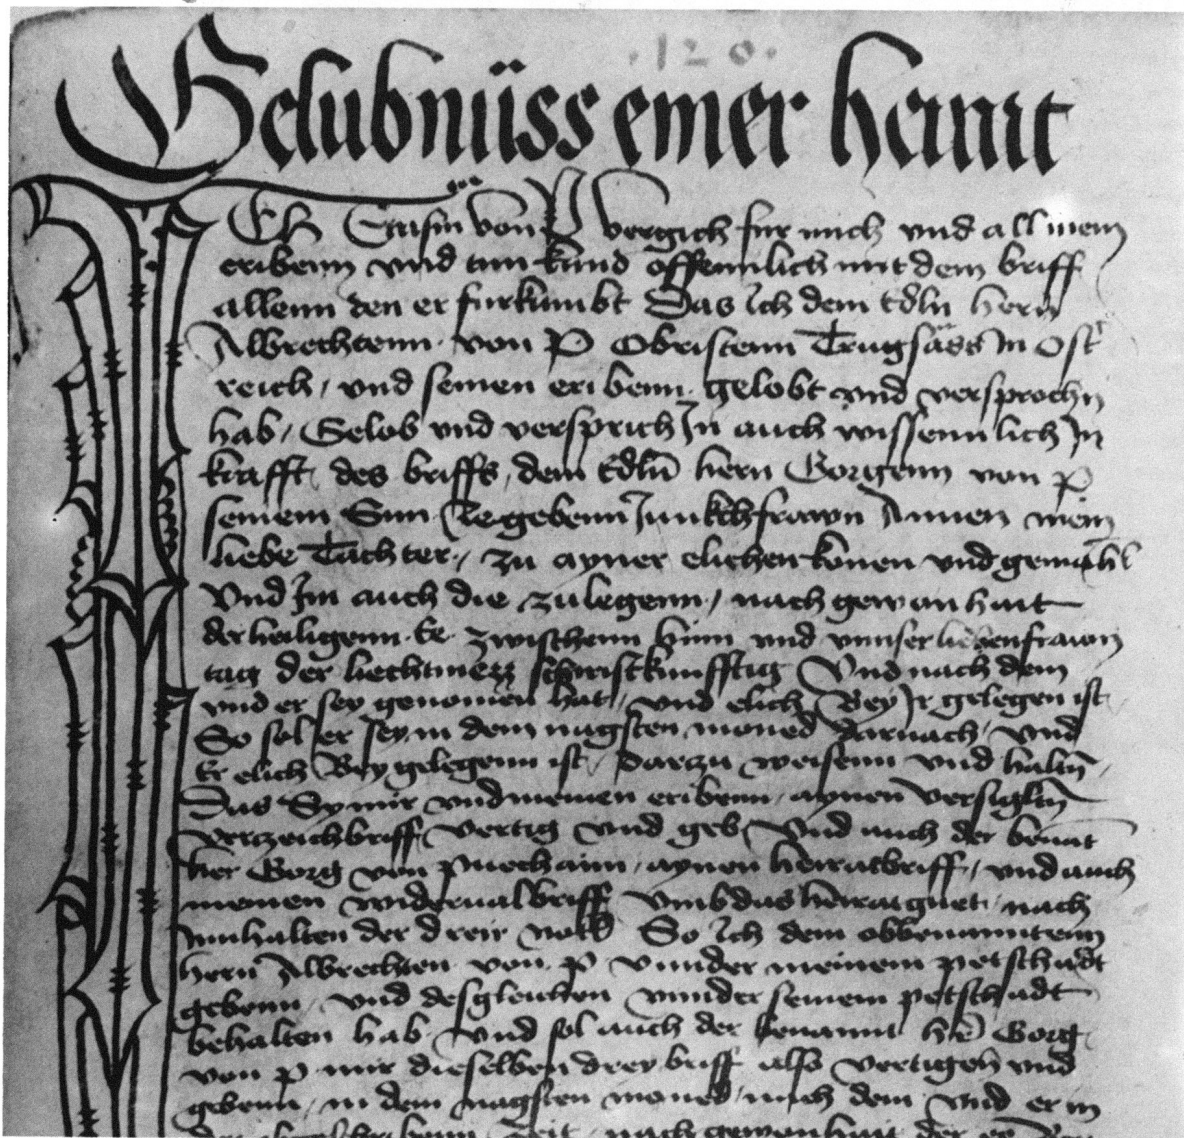 .120.
Gelubnüss einer heirat
Ich von P vergich fur mich und all mein
eribenn und tun kund offennlich mit dem briff
allenn den er furkumbt Das Ich dem Edln hern
Albrechtenn von P Obristenn Trugsäss In Ost
reich, und seinen eribenn gelobt und versprochn
hab, Gelob und versprich In auch wissennlich In
krafft des briffs, dem Edln hern Gorigenn von P
seinem Sun Junkchfrawn Annen mein
liebe Tachter, zu ayner elichen konen und gemahl
Und Im auch die zulegenn, nach gewonhait
der heiligenn Ee zwischenn hinn und unnser liebenfrawn
tag der liechtmess schiristkunfftig Und nach dem
und er sey genomen hat, und elich Bey Ir gelegen ist
So sol er sey in dem nagsten moned darnach, und
Er elich Bey gelegenn ist, Darzu weisenn und haltn,
Das Sy mir und meinen eribenn, aynen versigltn
verczeichbriff vertig und geb Und auch der benant
her Gorg von puechaim, aynen heiratbriff, und auch
meinen widervalbriff Umb das heiratguet, nach
innhalten der dreir notl So Ich dem obbenanntenn
hern Albrechten von P unnder meinem petschadt
gebenn, und desgleichen unnder seinem petschadt
behalten hab und sol auch der benannt her Gorg
von P mir dieselben drey briff also vertigen und
gebenn, in dem nagsten moned, nach dem und er in
zeit, nach gewonhait der